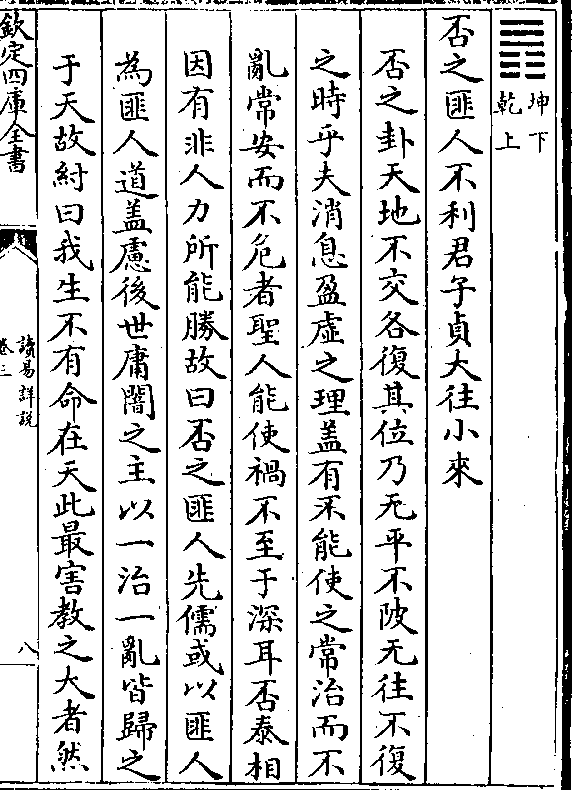 坤下
乾上
否之匪人不利君子貞大往小來
否之卦天地不交各復其位乃无平不陂无往不復
之時乎夫消息盈虛之理蓋有不能使之常治而不
亂常安而不危者聖人能使禍不至于深耳否泰相
因有非人力所能勝故曰否之匪人先儒或以匪人
為匪人道蓋慮後世庸闇之主以一治一亂皆歸之
于天故紂曰我生不有命在天此最害教之大者然
欽定四庫全書
讀易詳說
卷三
八